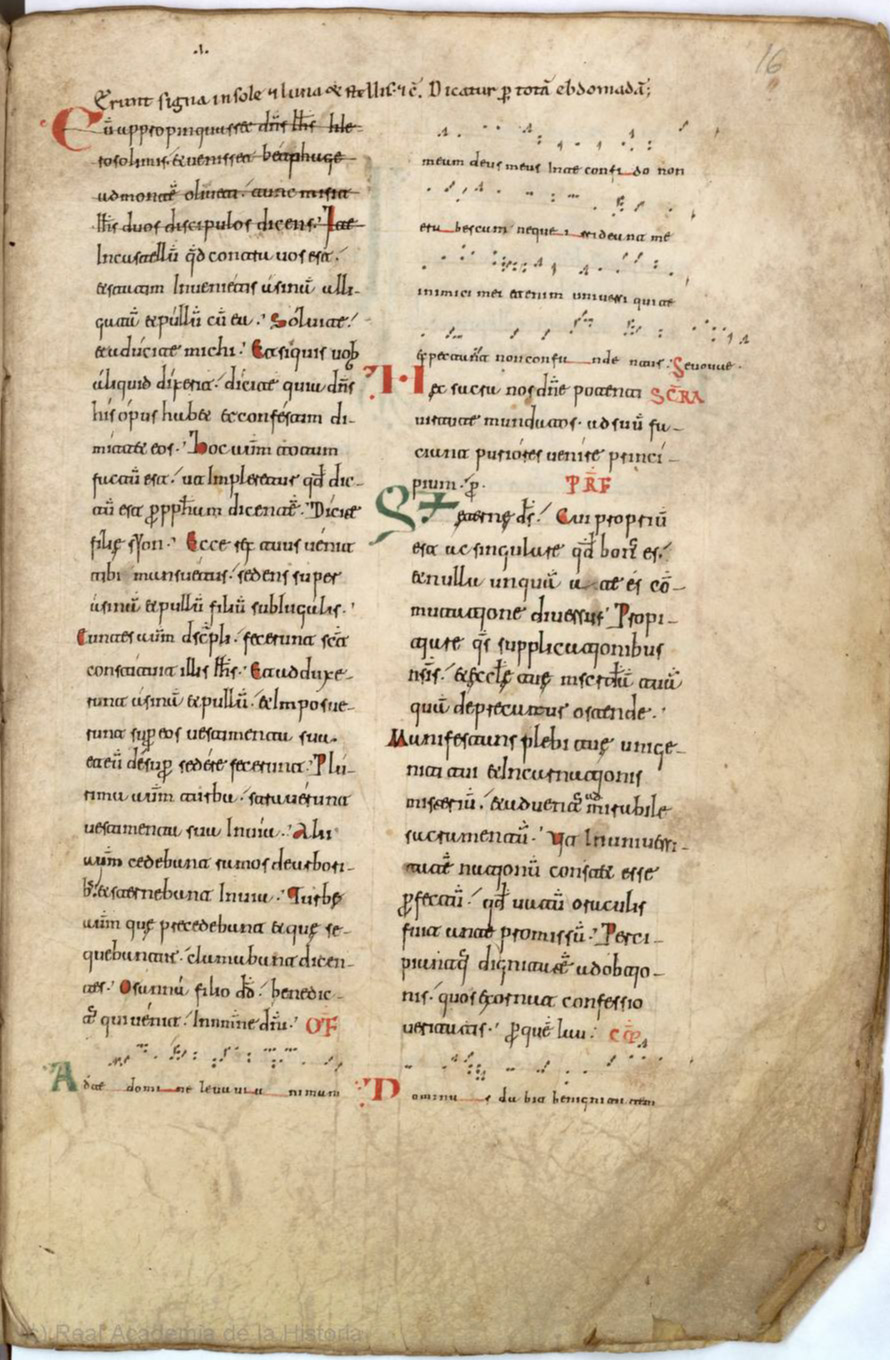 16
.1.
Erunt signa in sole & luna & stellis. & c̄. Dicatur ꝑ totā ebdomadā;
Cū appropinquasset dn̄s ih̄s hie
rosolimis. & venisset bethphage
ad montē oliveti. tunc misit
ih̄s duos discipulos dicens. Ite
In castellū q̄d contra vos est.
& statim Invenietis asinū alli-
gatū & pullū cū ea. Solvite.
& adducite michi. Et si quis vob
aliquid dixerit. dicite quia dn̄s
his opus habet & confestim di-
mittet eos. Hoc aūm totum
factū est. ut Impleretur qd̄ dic-
tū est ꝑ pph̄am dicentē. Dicite
filię syon. Ecce rex tuus venit
tibi mansuetus. sedens super
asinū & pullū filiū subIugalis.
Euntes aūm discp̄li. fecerunt sc̄t
constituit illis ih̄s. Et adduxe-
runt asinū & pullū. & Imposue-
runt suꝑ eos vestimenta sua.
et eū desuꝑ sedere fecerunt. Plu-
rima aūm turba. straverunt
vestimenta sua In via. Alii
aūm cedebant ramos de arbori-
b; & sternebant In via. Turbę
aūm que precedebant & quę se-
quebantur. clamabant dicen-
tes. Osanna filio dd̄. benedic-
t' qui venit. In nomine dn̄i. OF̄
Ad te domine levavi animam
meum deus meus In te confido non
erubescam neque irrideant me
inimici mei etenim universi qui te
expectant non confundentur. Sevovae.
Hęc sacra nos dn̄e potenti SC̄RA
virtute mundatos. ad suū fa-
ciant puriores venire princi-
pium. ꝑ. PR̄F
Eternę ds̄. Cui propriū
est ac singulare qd̄ bon' es.
& nulla unquā a te es cō-
mutatione diversus. Propi-
tiare qs̄ supplicationibus
nr̄is. & eccl̄ę tuę mīscdiā tuā
quā deprecatur ostende.
Manifestans plebi tuę unige-
niti tui & Incarnationis
misteriū. & advent' mirabile
sacramentū. Ut In universi-
tate nationū constet esse
ꝑfectū. qd̄ vatū oraculis
fuit ante promissū. Perci-
piantq; dignitatē adoptio-
nis. quos exornat confessio
veritatis. ꝑ quē lau. CŌ
Dominus dabit benignitatem